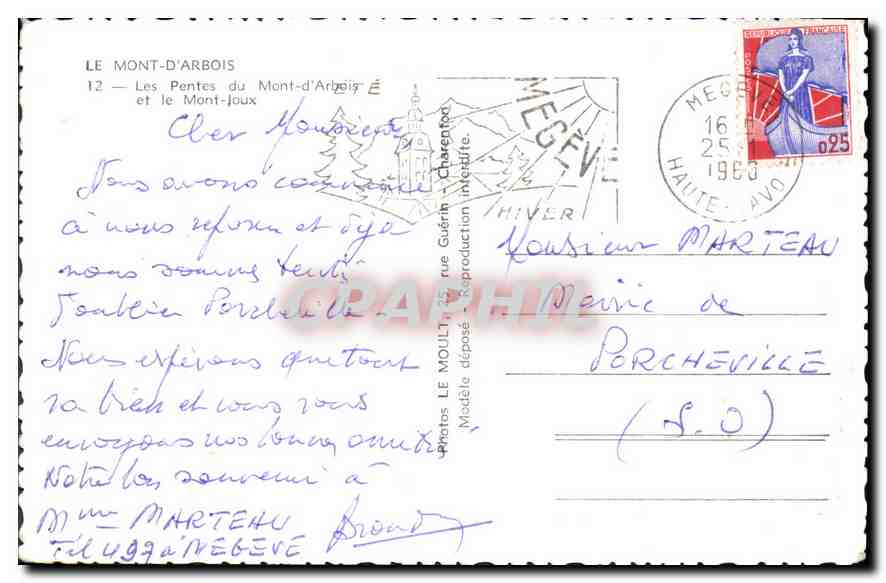 LE MONT-D'ARBOIS
12 — Les Pentes du Mont-d'Arbois
et le Mont-Joux
Cher Monsieur
Nous avons commencé
à nous reposer et déjà
nous sommes tentés
d'oublier Porcheville.
Nous espérons que tout
va bien et vous
envoyons nos bonnes amitiés
Notre bon souvenir à
Mme MARTEAU
Tél 497 à MEGEVE
Photos LE MOULT, 25, rue Guérin - Charenton
Modèle déposé - Reproduction interdite.
ÉTÉ
MEGÈVE
HIVER
MEGÈVE
16 H
25
1960
HAUTE-SAVOIE
REPUBLIQUE FRANÇAISE
POSTES
0,25
Monsieur MARTEAU
Mairie de
PORCHEVILLE
(S.O)
CPAPHIL